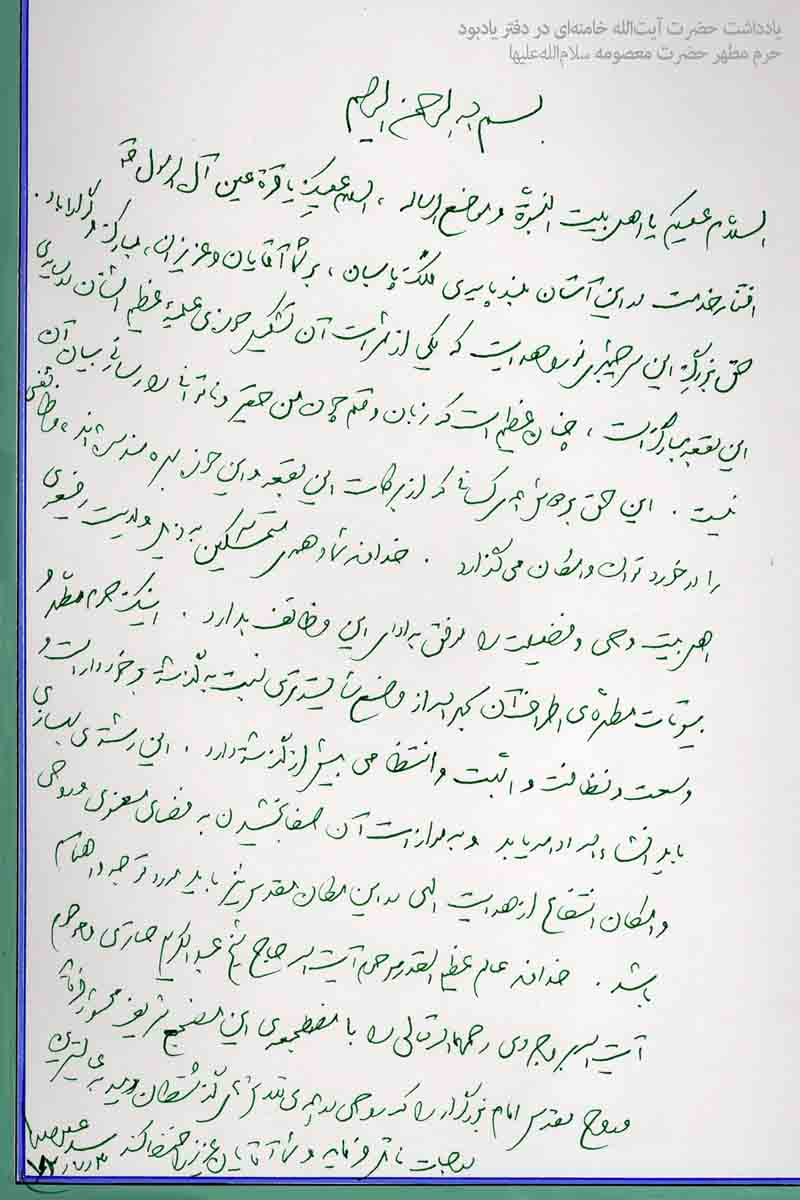 یادداشت حضرت آیت‌الله خامنه‌ای در دفتر یادبود
حرم مطهر حضرت معصومه سلام‌الله‌علیها
بسم الله الرحمن الرحیم
السلام علیکم یا اهل بیت النبوة و موضع الرساله ، السلام علیکِ یا قرة عین آل الرسول
افتخار خدمت در این آستان بلند پایه‌ی ملائک پاسبان ، بر شما آقایان و عزیزان ، مبارک و گوارا باد .
حق بزرگ این سرچشمه‌ی نور و هدایت که یکی از ثمرات آن تشکیل حوزه‌ی علمیه‌ی عظیم الشأن در
این بقعه مبارکه است ، چنان عظیم است که زبان و قلم چون من حقیر و ناتوان را رسائی بیان آن
نیست . این حق بر دوش همه‌ی کسانی که از برکات این بقعه و این حوزه بهره‌مند شده‌اند ، وظائفی
را در خورد توان و امکان می‌گذارد . خداوند شما و همه‌ی متمسکین به ذیل ولایت رفیعه‌ی
اهل بیت وحی و فضیلت را موفق به ادای این وظائف بدارد . اینک حرم مطهر و
بیوتات مطهره‌ی اطراف آن بحمدالله از وضع شایسته‌تری نسبت به گذشته برخوردار است و
وسعت و نظافت و ابهت و انتظامی بیش از گذشته دارد . این رشته‌ی بهسازی
باید انشاءالله ادامه یابد و به موازات آن صفا بخشیدن به فضای معنوی و روحی
و امکان انتفاع از هدایت الهی در این مکان مقدس نیز باید مورد توجه و اهتمام
باشد . خداوند عالم عظیم القدر مرحوم آیت الله حاج شیخ عبدالکریم حائری و مرحوم
آیت الله بروجردی رحمهما الله تعالی را با مضطجعه‌ی این مضجع شریف محشور فرماید
و روح مقدس امام بزرگوار را که روحی در همه‌ی تقدس‌های گذشتگان دمید به عالی‌ترین
درجات نائل فرماید و شما آقایان عزیز را حفظ کند
سید علی خامنه‌ای